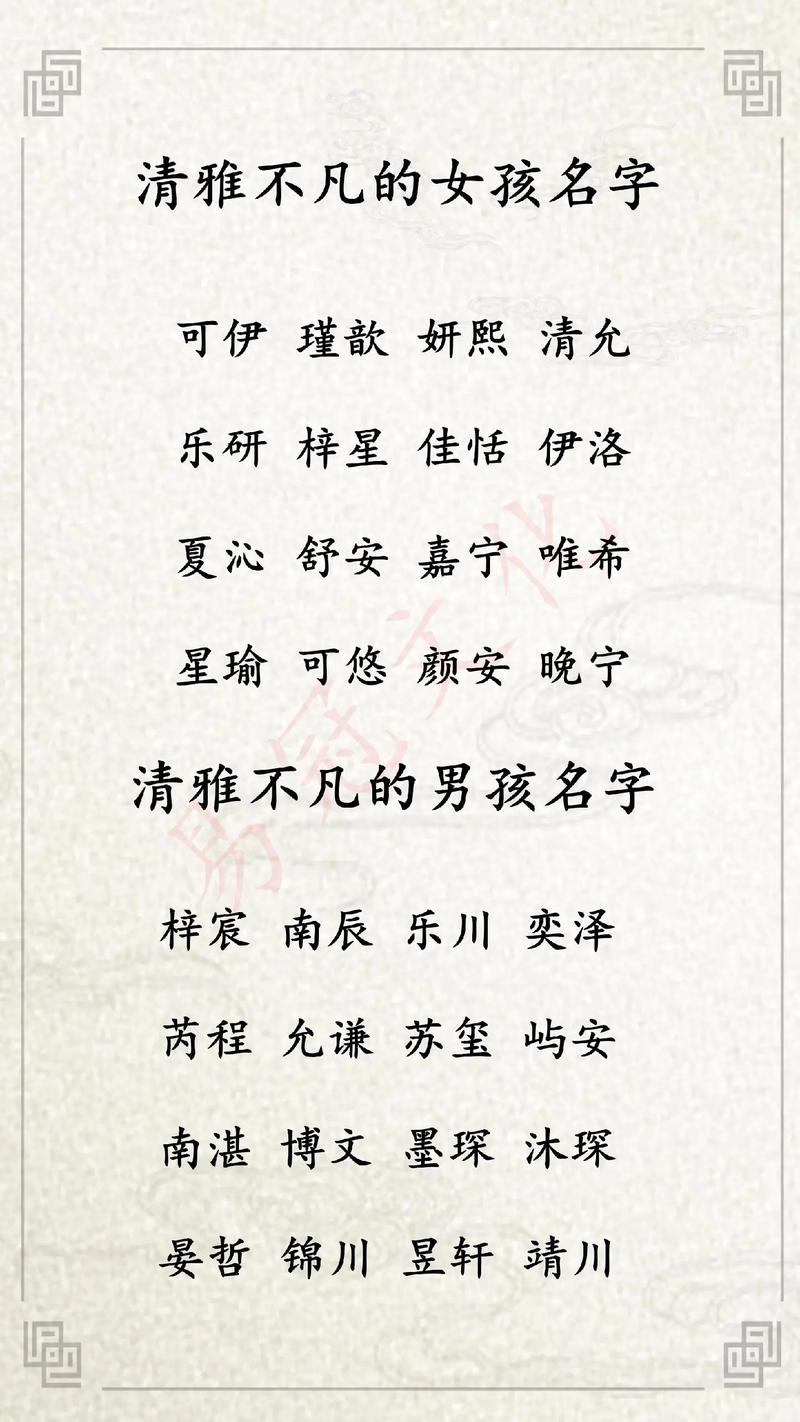 清雅不凡的女孩名字
可伊 瑾歆 妍熙 清允
乐研 梓星 佳恬 伊洛
夏沁 舒安 嘉宁 唯希
星瑜 可悠 颜安 晚宁
清雅不凡的男孩名字
梓宸 南辰 乐川 奕泽
芮程 允谦 苏玺 屿安
南湛 博文 墨琛 沐琛
晏哲 锦川 昱轩 靖川
易冠文化